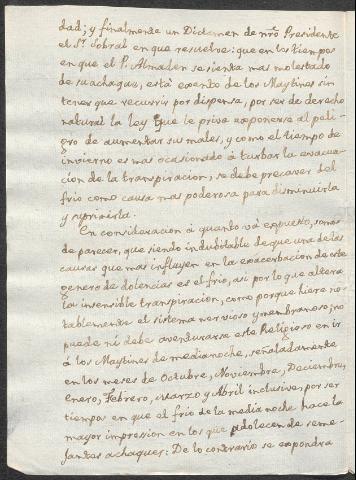 dad; y finalmente un Dictamen de nr̃o Presidente
el Sr. Sobral en que resuelve: que en los tiempos
en que el P. Almaden se sienta mas molestado
de su achaque, està exento de los Maytines sin
tener que recurrir por dispensa, por ser de derecho
natural la ley que le prive exponerse al peli-
gro de aumentar sus males, y como el tiempo de
invierno es mas ocasionado à turbar la evacua-
cion de la transpiracion, se debe precaver del
frio como causa mas poderosa para disminuirla
y suprimirla.
En consideracion à quanto và expuesto, somos
de parecer, que siendo indubitable de que una delas
causas que mas influyen en la exacerbacion de este
genero de dolencias es el frio, asi por lo que altera
la insensible transpiracion, como porque hiere no-
tablemente el sistema nervioso y membranoso; no
puede ni debe aventurarse este Religioso en ir
à los Maytines de media noche, señaladamente
en los meses de Octubre, Noviembre, Deciembre,
Enero, Febrero, Marzo y Abril inclusive, por ser
tiempos en que el frio de la media noche hace la
mayor impression en los que adolecen de seme-
jantes achaques: De lo contrario se expondra